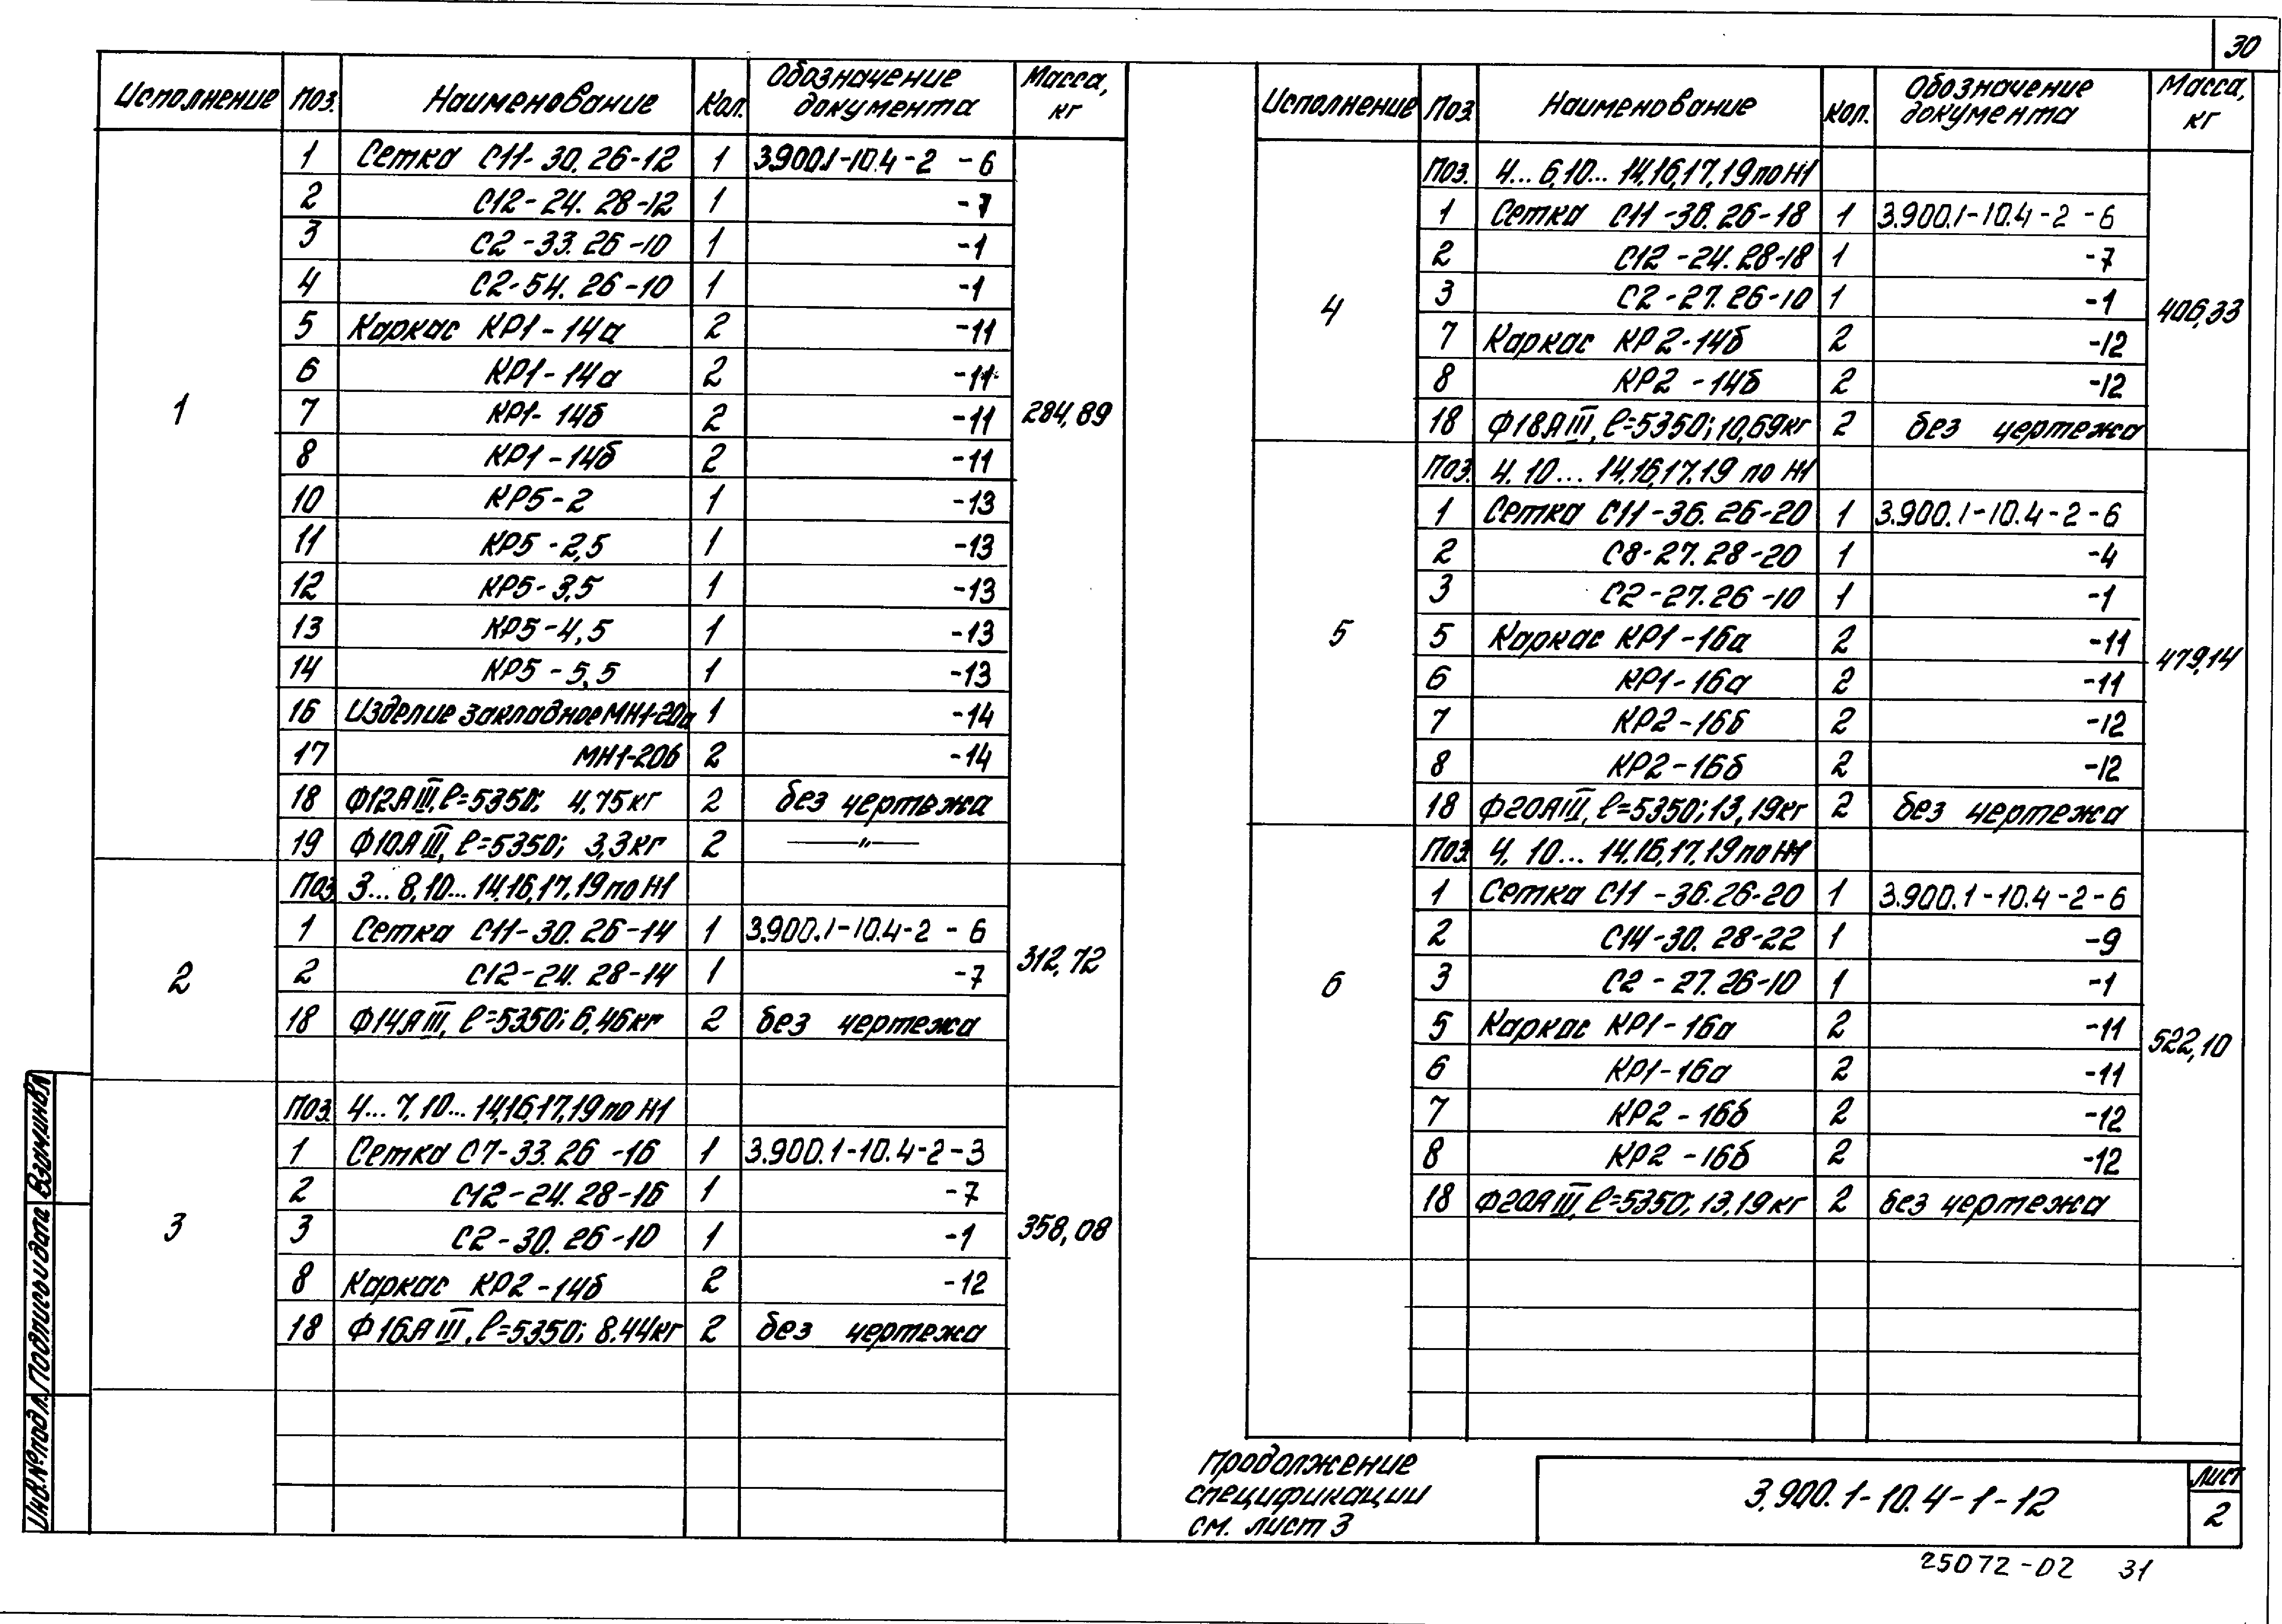 30
Исполнение Поз. Наименование Кол. Обозначение документа Масса, кг
1 284,89
1 Сетка С11-30.26-12 1 3.900.1-10.4-2 -6
2 С12-24.28-12 1 -7
3 С2-33.26-10 1 -1
4 С2-54.26-10 1 -1
5 Каркас КР1-14а 2 -11
6 КР1-14а 2 -11
7 КР1-14б 2 -11
8 КР1-14б 2 -11
10 КР5-2 1 -13
11 КР5-2,5 1 -13
12 КР5-3,5 1 -13
13 КР5-4,5 1 -13
14 КР5-5,5 1 -13
16 Изделие закладное МН1-20а 1 -14
17 МН1-20б 2 -14
18 Ф12АIII, ℓ=5350; 4,75кг 2 без чертежа
19 Ф10АIII, ℓ=5350; 3,3кг 2 —"—
2 312,72
Поз. 3...8,10...14,16,17,19 по Н1
1 Сетка С11-30.26-14 1 3.900.1-10.4-2 -6
2 С12-24.28-14 1 -7
18 Ф14АIII, ℓ=5350; 6,46кг 2 без чертежа
3 358,08
Поз. 4...7,10...14,16,17,19 по Н1
1 Сетка С7-33.26-16 1 3.900.1-10.4-2-3
2 С12-24.28-16 1 -7
3 С2-30.26-10 1 -1
8 Каркас КР2-14б 2 -12
18 Ф16АIII, ℓ=5350; 8.44кг 2 без чертежа
Исполнение Поз. Наименование Кол. Обозначение документа Масса, кг
4 406,33
Поз. 4...6,10...14,16,17,19 по Н1
1 Сетка С11-36.26-18 1 3.900.1-10.4-2-6
2 С12-24.28-18 1 -7
3 С2-27.26-10 1 -1
7 Каркас КР2-14б 2 -12
8 КР2-14б 2 -12
18 Ф18АIII, ℓ=5350; 10,69кг 2 без чертежа
5 479,14
Поз. 4.10...14,16,17,19 по Н1
1 Сетка С11-36.26-20 1 3.900.1-10.4-2-6
2 С8-27.28-20 1 -4
3 С2-27.26-10 1 -1
5 Каркас КР1-16а 2 -11
6 КР1-16а 2 -11
7 КР2-16б 2 -12
8 КР2-16б 2 -12
18 Ф20АIII, ℓ=5350; 13,19кг 2 без чертежа
6 522,10
Поз. 4, 10...14,16,17,19 по Н1
1 Сетка С11-36.26-20 1 3.900.1-10.4-2-6
2 С14-30.28-22 1 -9
3 С2-27.26-10 1 -1
5 Каркас КР1-16а 2 -11
6 КР1-16а 2 -11
7 КР2-16б 2 -12
8 КР2-16б 2 -12
18 Ф20АIII, ℓ=5350; 13,19кг 2 без чертежа
Продолжение
спецификации
см. лист 3
3.900.1-10.4-1-12
Лист
2
25072-02 31
Инв.№ подл. Подпись и дата Взам.инв.№